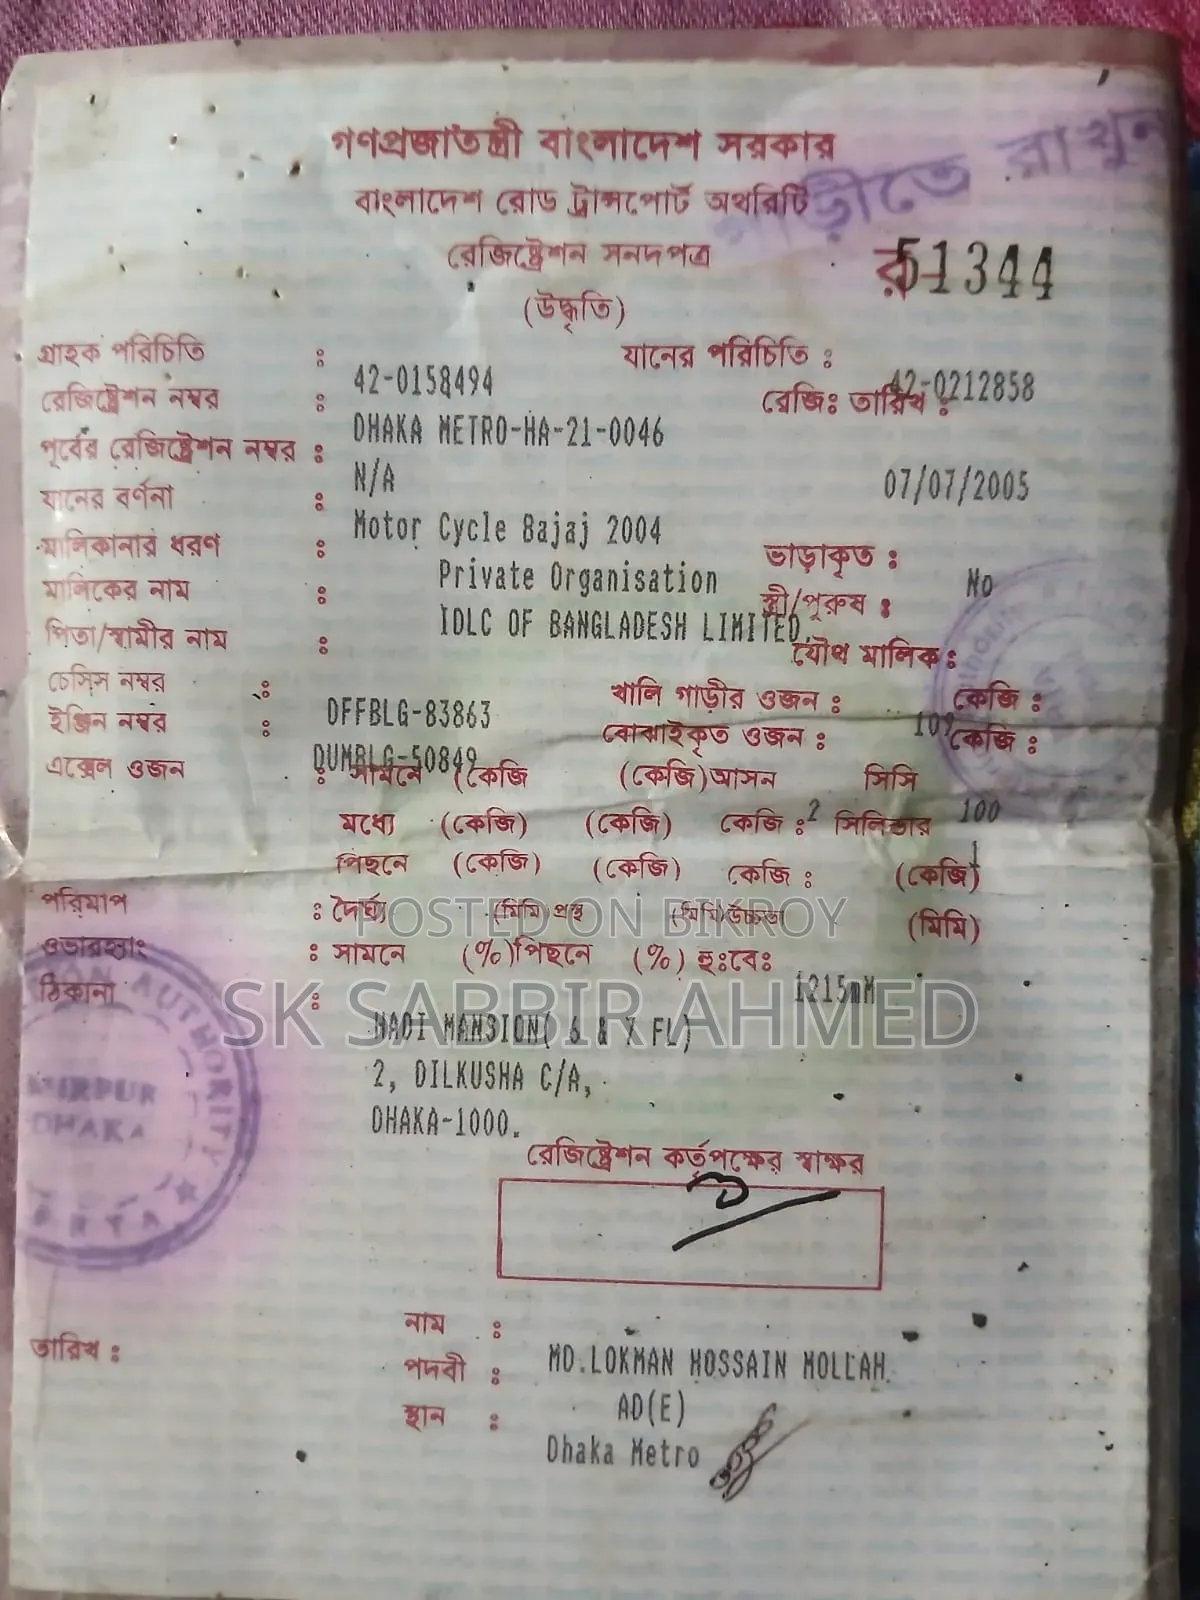 গাড়ীতে রাখুন
গণপ্রজাতন্ত্রী বাংলাদেশ সরকার
বাংলাদেশ রোড ট্রান্সপোর্ট অথরিটি
রেজিষ্ট্রেশন সনদপত্র
র 51344
(উদ্ধৃতি)
গ্রাহক পরিচিতি : 42-0158494 যানের পরিচিতি : 42-0212858
রেজিষ্ট্রেশন নম্বর : DHAKA METRO-HA-21-0046 রেজিঃ তারিখ : 07/07/2005
পূর্বের রেজিষ্ট্রেশন নম্বর : N/A
যানের বর্ণনা : Motor Cycle Bajaj 2004
মালিকানার ধরণ : Private Organisation ভাড়াকৃত : No
মালিকের নাম : IDLC OF BANGLADESH LIMITED, স্ত্রী/পুরুষ :
পিতা/স্বামীর নাম : যৌথ মালিক :
চেসিস নম্বর : DFFBLG-83863 খালি গাড়ীর ওজন : 109 কেজি :
ইঞ্জিন নম্বর : DUMBLG-50849 বোঝাইকৃত ওজন : কেজি :
এক্সেল ওজন : সামনে (কেজি (কেজি) আসন 2 সিসি 100
মধ্যে (কেজি) (কেজি) কেজি : সিলিন্ডার
পিছনে (কেজি) (কেজি) কেজি : (কেজি)
পরিমাপ : দৈর্ঘ্য (মিমি) প্রস্থ (মিমি) উচ্চতা (মিমি)
POSTED ON BIKROY
ওভারহ্যাং : সামনে (%) পিছনে (%) হুঃবেঃ 1215mM
SK SABBIR AHMED
ঠিকানা : HADI MANSION( 6 & 7 FL)
2, DILKUSHA C/A,
DHAKA-1000.
AUTHORITY
MIRPUR
DHAKA
BRTA
রেজিষ্ট্রেশন কর্তৃপক্ষের স্বাক্ষর
তারিখ :
নাম : MD.LOKMAN HOSSAIN MOLLAH
পদবী : AD(E)
স্থান : Dhaka Metro